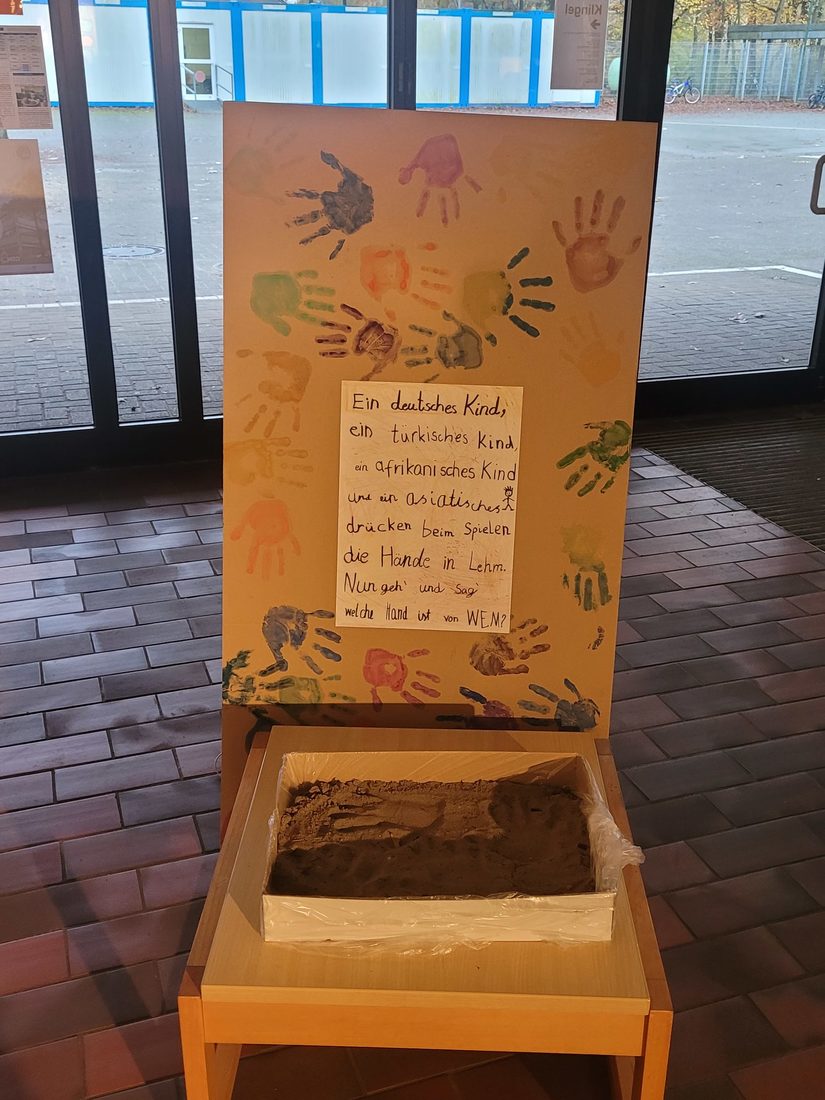 Klingel
Ein deutsches Kind,
ein türkisches Kind,
ein afrikanisches Kind
und ein asiatisches
drücken beim Spielen
die Hände in Lehm.
Nun geh' und sag'
welche Hand ist von WEM?